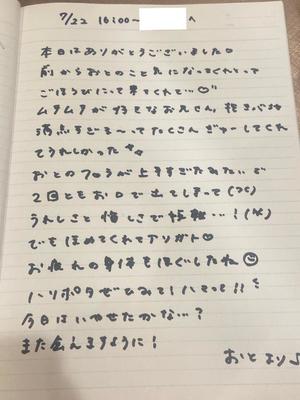 7/22 16:00~ へ
本日はありがとうございました♡
前からおとのこと気になってくれとって
ごほうびにって来てくれて…♡
ムチムチが好きなお兄さん、抱き
すご〜ってたくさんぎゅーしてくれ
てうれしかった
おとのフェラが上手すぎたみたいで
2回ともお口で出てしまって
うれしさと悔しさで
でもほめてくれてアリガト♡
お疲れの身体もほぐしたね☺
ハリポタぜひみて!ハマって!!
今日はいやせたかな…?
また会えますように!
おと より♪